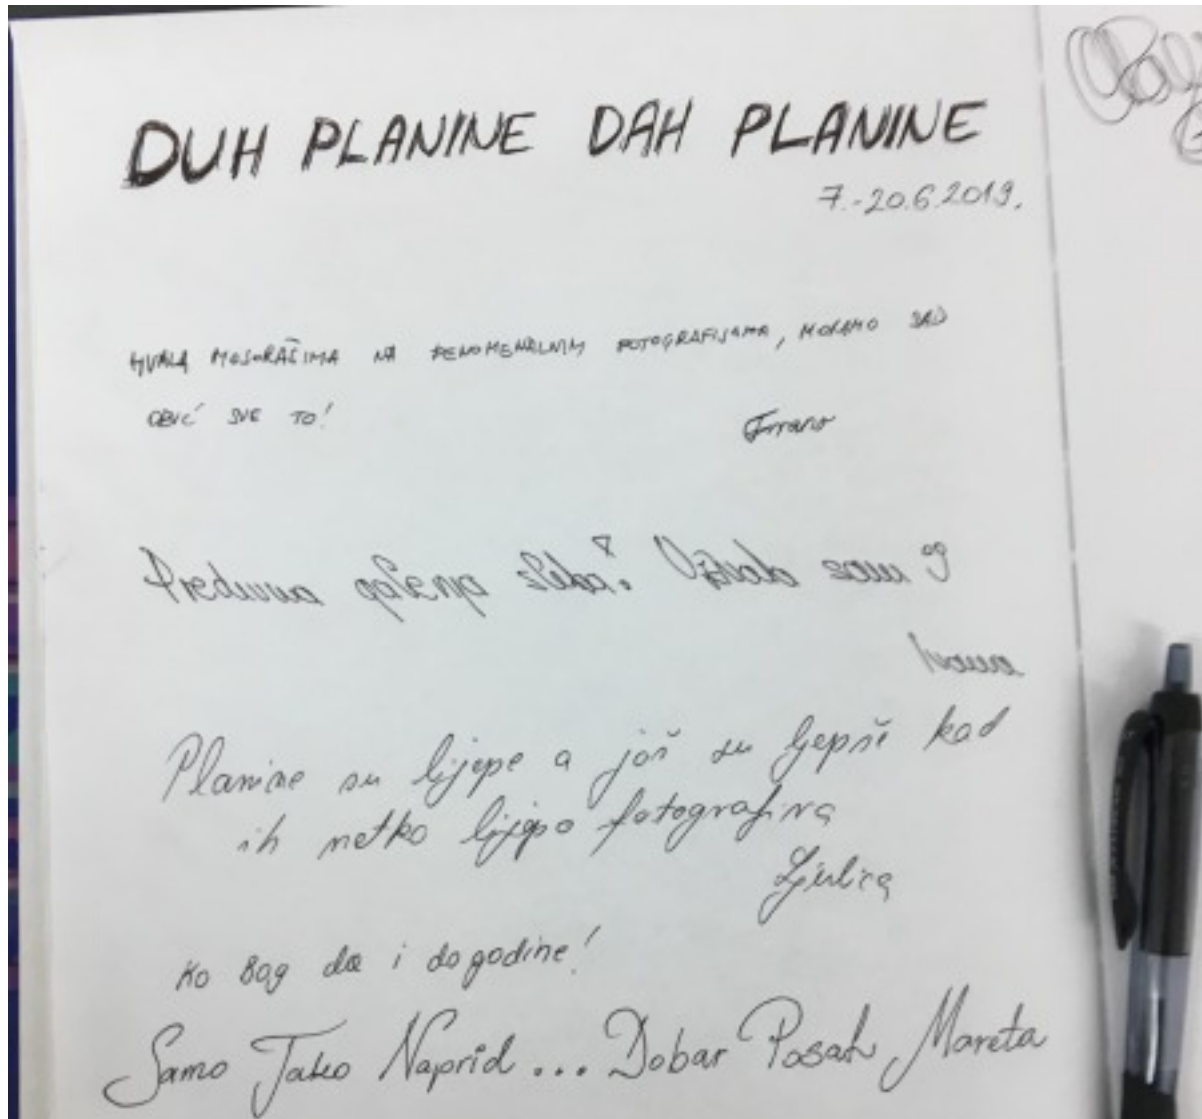 DUH PLANINE DAH PLANINE
7.-20.6.2019.
HVALA MOSORAŠIMA NA FENOMENALNIM FOTOGRAFIJAMA, MORAMO SAD
OBIĆ SVE TO!
Frrano
Predivna galerija slika! Uživala sam
Ivana
Planine su lijepe a još su ljepše kad
ih netko lijepo fotografira
Ljerka
Ko Bog da i dogodine!
Samo Tako Naprid... Dobar Posah Mareta